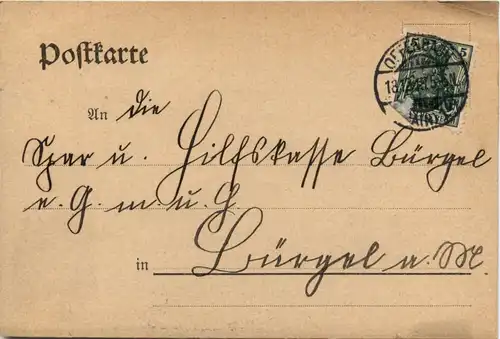 Postkarte
5
An die
Spar u. Hilfskasse Bürgel
e. G. m. u. H.
in Bürgel a. M.